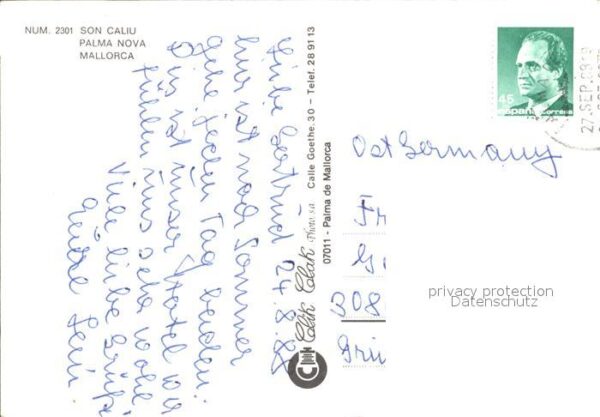 NUM. 2301 SON CALIU
PALMA NOVA
MALLORCA
Liebe Gertrud 24.8.88
hier ist noch Sommer
gehe jeden Tag baden.
Das ist unser Hotel wo
fühlen uns sehr wohl
Viele liebe Grüße
Clik Clak Photo s.a. Calle Goethe, 30 – Telef. 28 91 13
07011 - Palma de Mallorca
45
España correos
27 SEP. 1988
Ost Germany
Fr
G.
308
Grü
privacy protection
Datenschutz